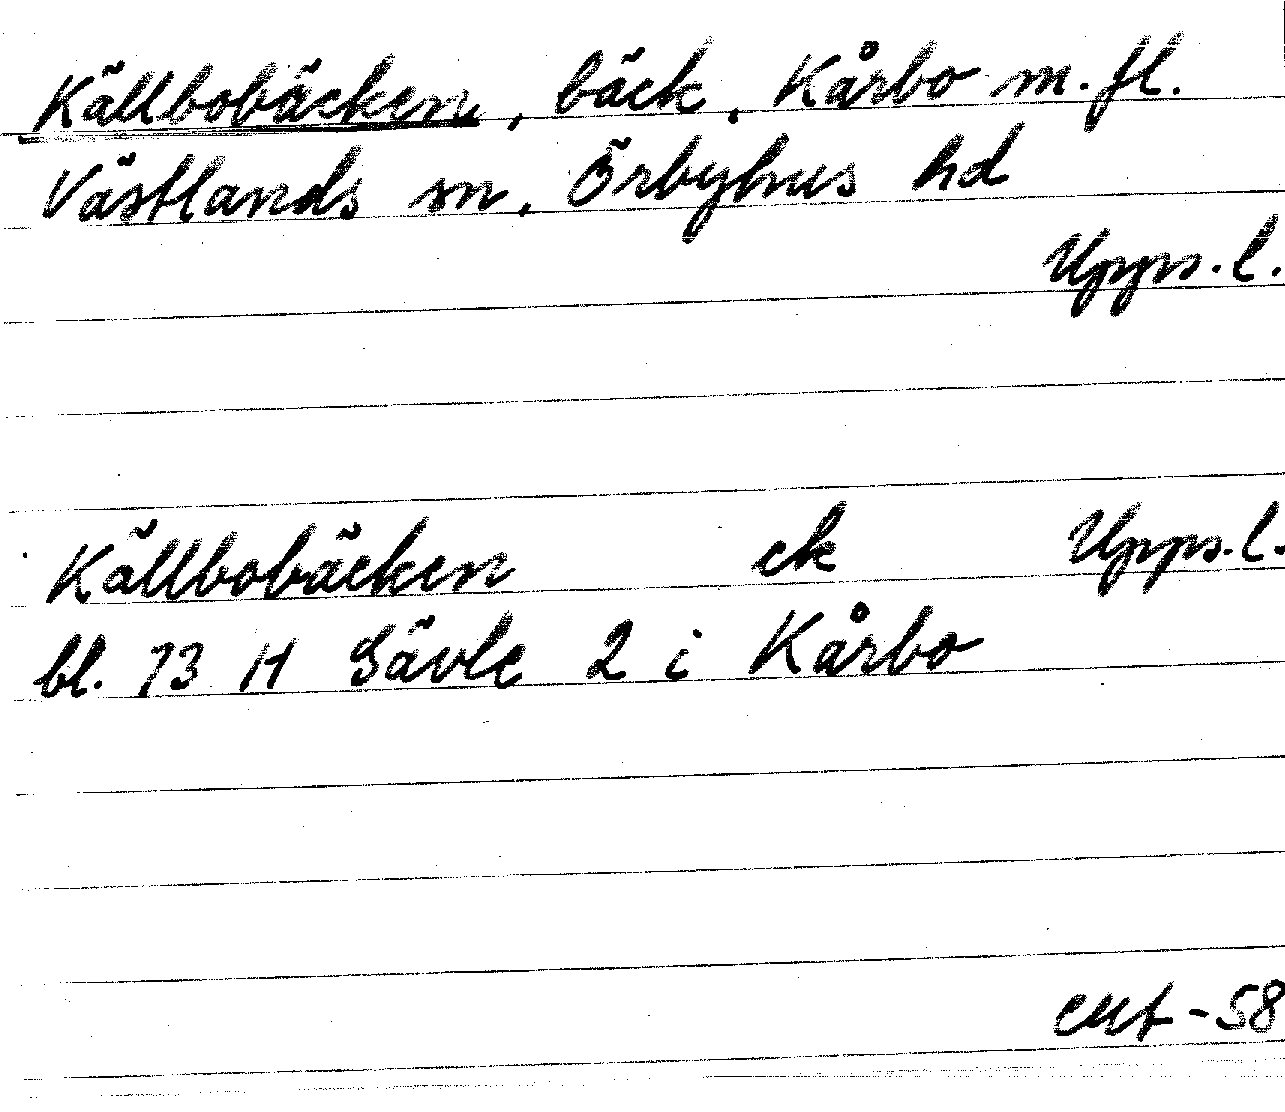 Källbobäcken, bäck, Kårbo m.fl.
Västlands sn, Örbyhus hd
Upps.l.
Källbobäcken ek Upps.l.
bl. 13 H Gävle 2 i Kårbo
-58